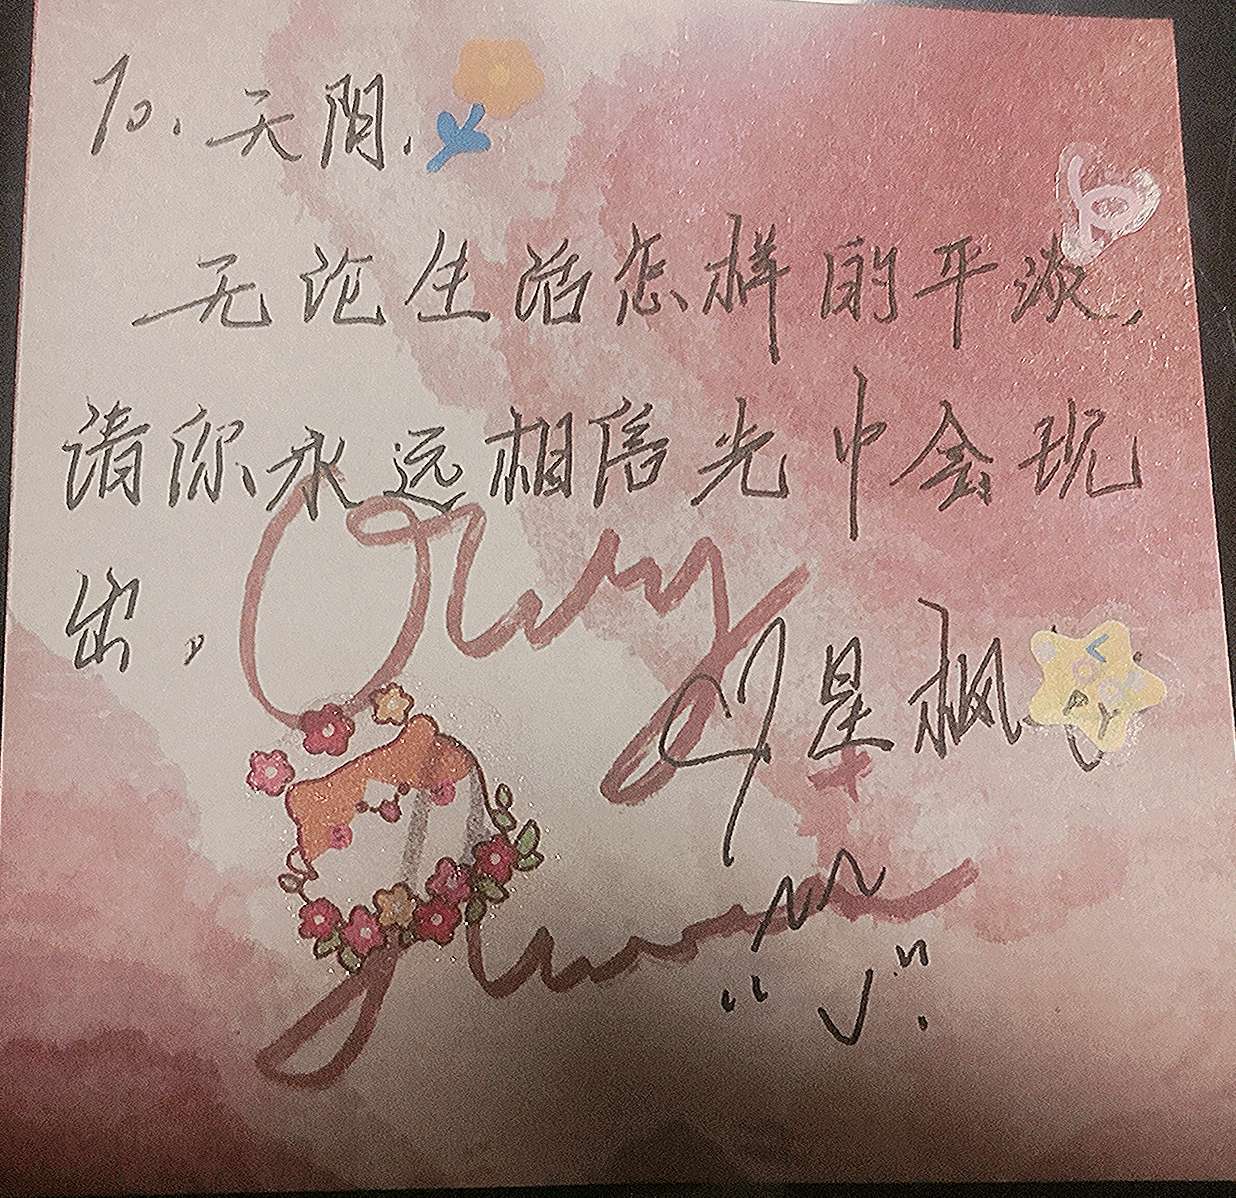 To. 天阴.
无论生活怎样的平淡,
请你永远相信光中会现
出,
星枫